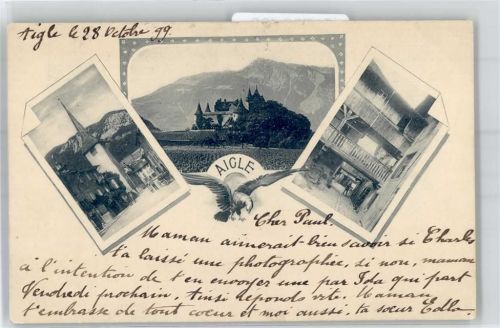 Aigle le 28 Octobre 99.
AIGLE
Cher Paul.
Maman aimerait bien savoir si Charles
t'a laissé une photographie, si non, maman
à l'intention de t'en envoyer une par Ida qui part
Vendredi prochain. Ainsi reponds vite. Maman
t'embrasse de tout coeur et moi aussi. ta soeur